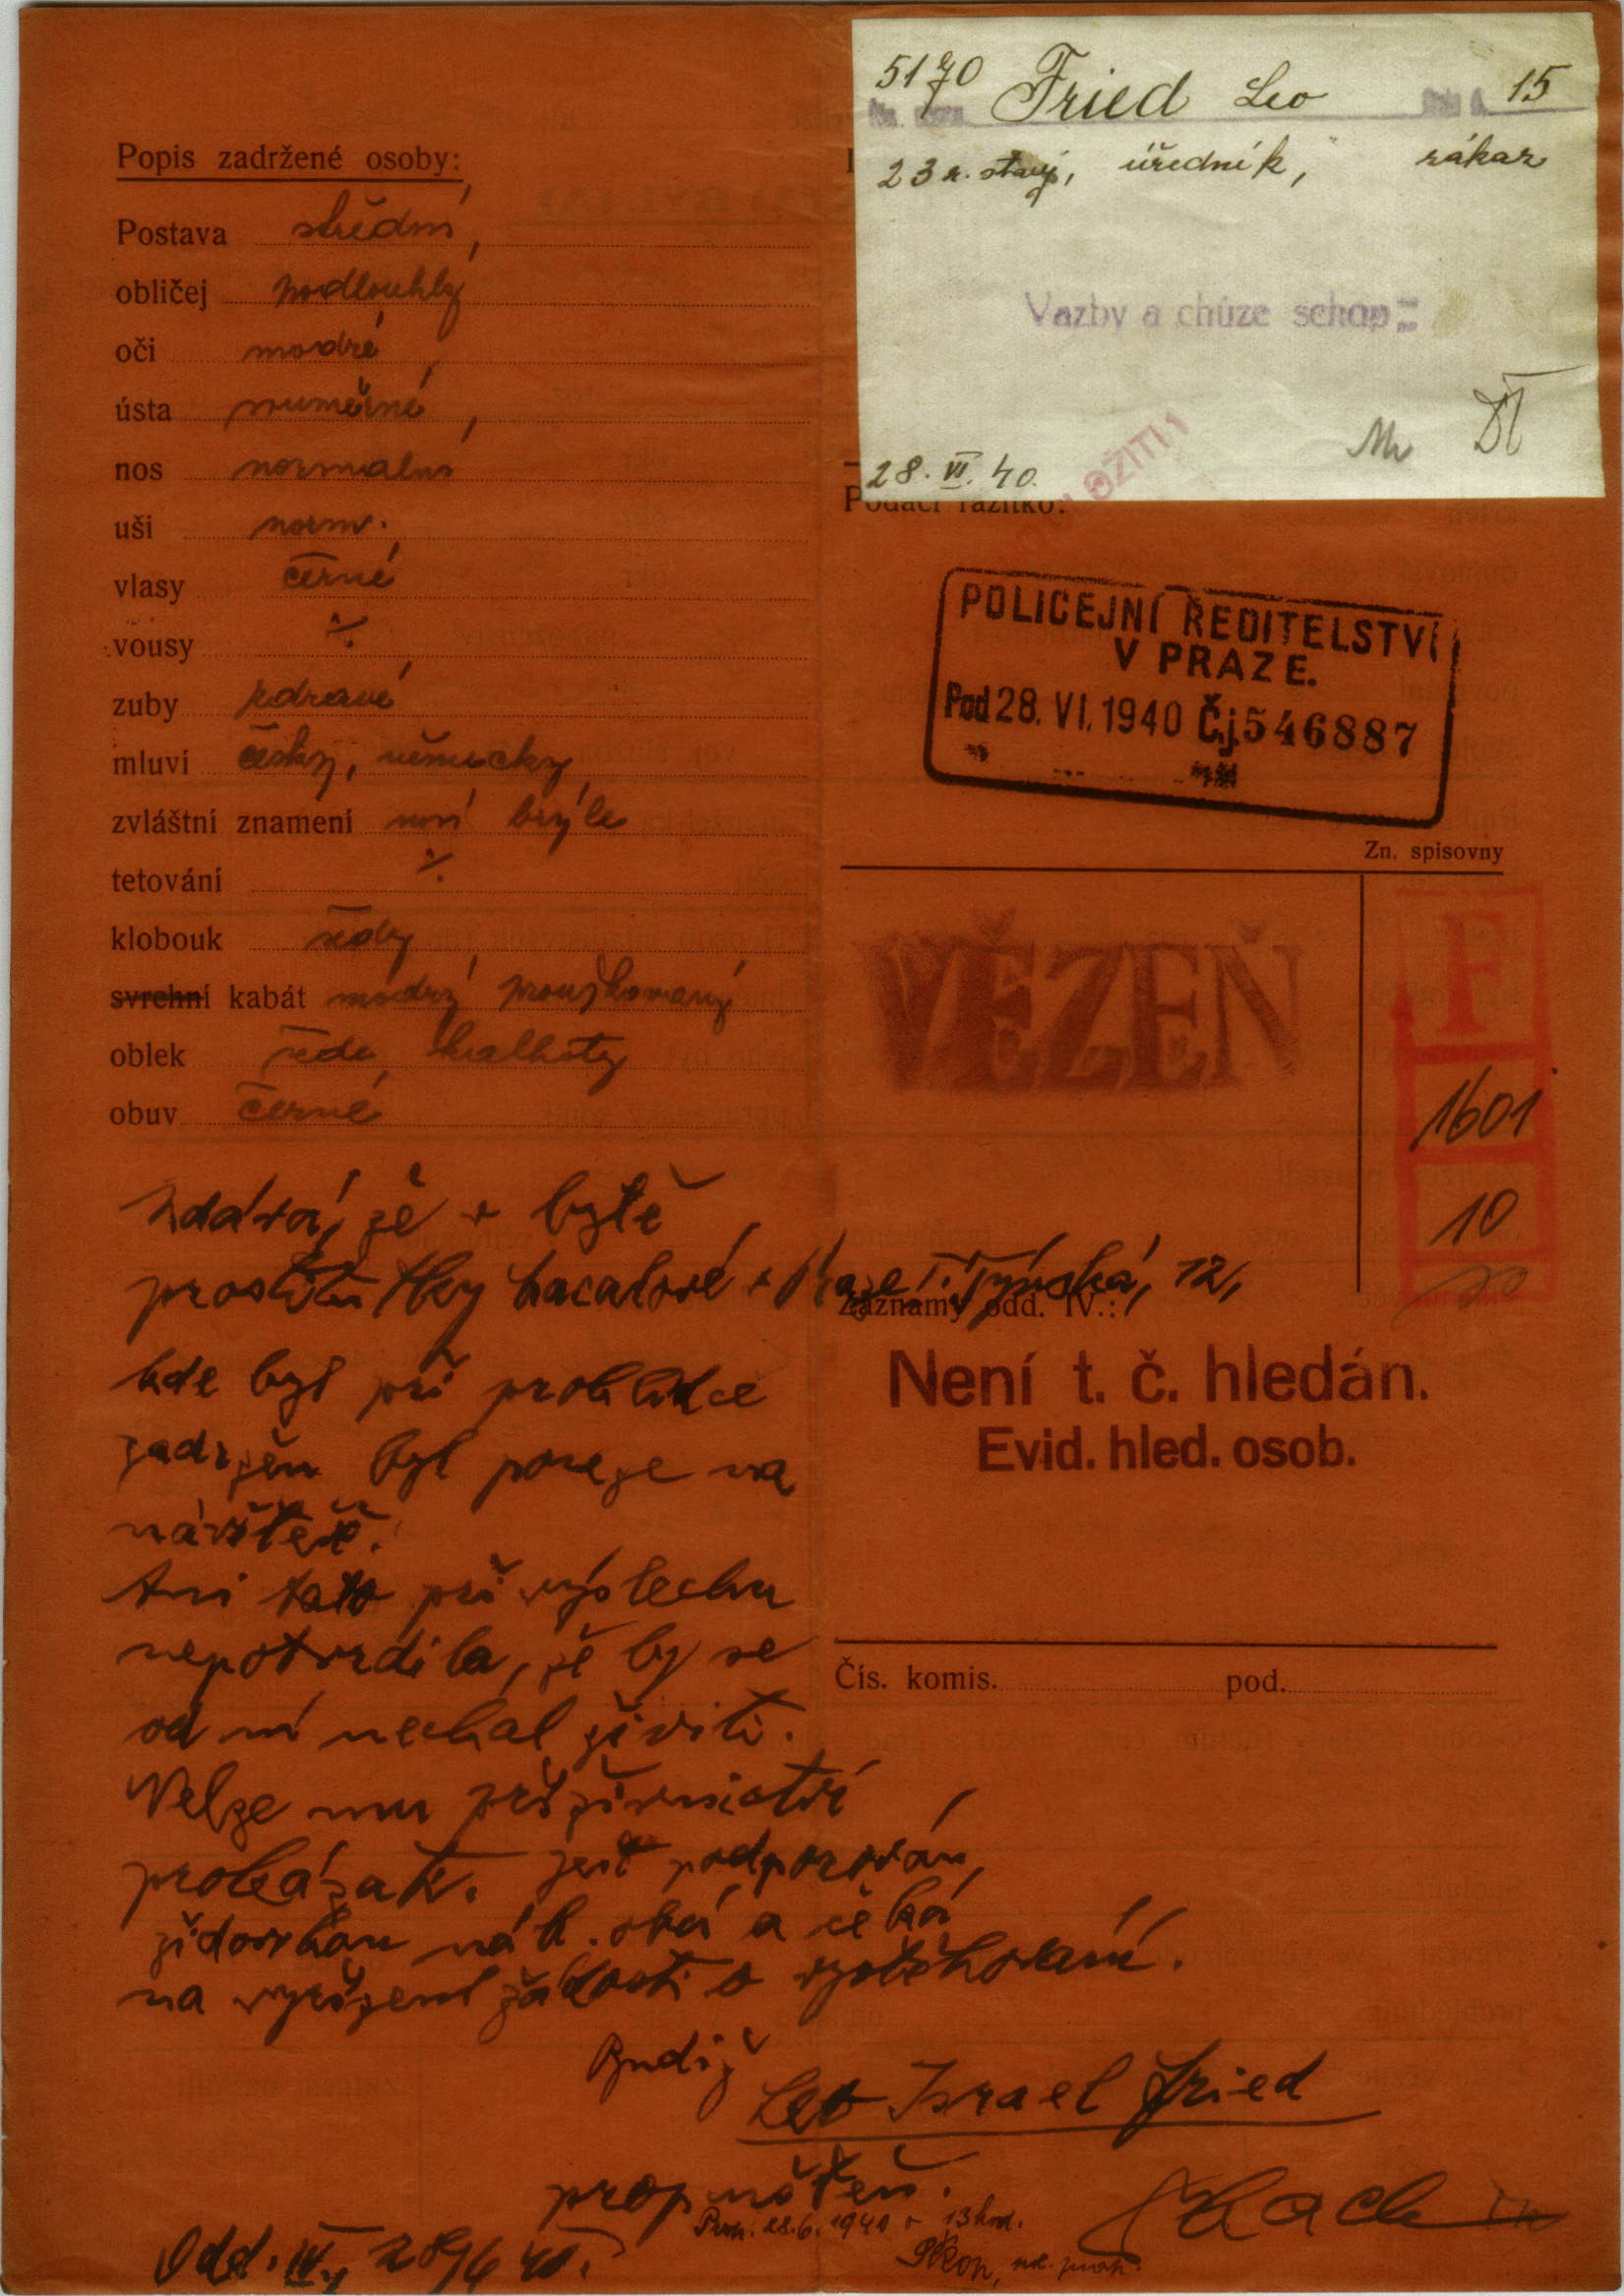 5170 Fried Leo 15
23 r. starý, úředník, zákaz
Vazby a chůze schop
28. VI. 40.
Popis zadržené osoby:
Postava střední,
obličej podlouhlý
oči modré,
ústa souměrné,
nos normalní
uši norm.
vlasy černé
vousy ./.
zuby zdravé
mluví česky, německy
zvláštní znamení nosí brýle
tetování ./.
klobouk šedý
svrchní kabát modrý proužkovaný
oblek šedé kalhoty
obuv černé
Podací razítko:
POLICEJNÍ ŘEDITELSTVÍ
V PRAZE.
Pod 28. VI. 1940 Čj 546887
Zn. spisovny
VĚZEŇ
F
1601
10
Udává, že v bytě
prostitutky v Praze I. Týnská, 12,
Záznamy odd. IV.:
kde byl při prohlídce
zadržen byl pouze na
návštěvě.
Ani tato při výslechu
nepotvrdila, že by se
od ní nechal živiti.
Nelze mu příživnictví
prokázati. Jest podporován
židovskou náb. obcí a čeká
na vyřízení žádosti o vystěhování.
Není t. č. hledán.
Evid. hled. osob.
Čís. komis. pod.
Budiž
Leo Israel Fried
propuštěn.
Prop: 28.6.1940 v 13 hod.
Odd. IV, 28/6 40.